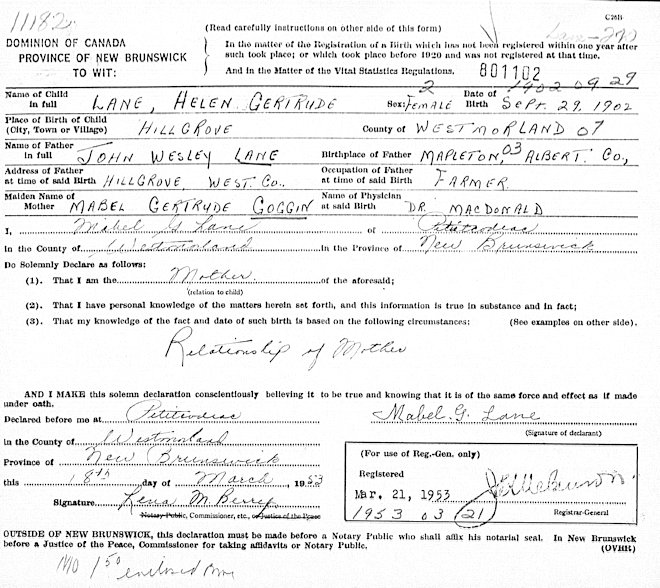 11182
C26B
(Read carefully instructions on other side of this form)
DOMINION OF CANADA
PROVINCE OF NEW BRUNSWICK
TO WIT:
In the matter of the Registration of a Birth which has not been registered within one year after
such took place; or which took place before 1920 and was not registered at that time.
And in the Matter of the Vital Statistics Regulations.
801102
2 1902 09 29
Name of Child in full LANE, HELEN GERTRUDE Sex: FEMALE Date of Birth SEPT. 29, 1902
Place of Birth of Child (City, Town or Village) HILLGROVE County of WESTMORLAND 07
Name of Father in full JOHN WESLEY LANE Birthplace of Father MAPLETON, 03 ALBERT. CO.,
Address of Father at time of said Birth HILLGROVE, WEST. CO., Occupation of Father at time of said Birth FARMER
Maiden Name of Mother MABEL GERTRUDE GOGGIN Name of Physician at said Birth DR. MACDONALD
I, Mabel G. Lane of Petitcodiac
in the County of Westmorland in the Province of New Brunswick
Do Solemnly Declare as follows:
(1). That I am the Mother of the aforesaid;
(relation to child)
(2). That I have personal knowledge of the matters herein set forth, and this information is true in substance and in fact;
(3). That my knowledge of the fact and date of such birth is based on the following circumstances: (See examples on other side).
Relationship of Mother
AND I MAKE this solemn declaration conscientiously believing it to be true and knowing that it is of the same force and effect as if made
under oath.
Declared before me at Petitcodiac
Mabel. G. Lane
(Signature of declarant)
in the County of Westmorland
Province of New Brunswick
this 18th day of March, 1953
Signature Rena M. Berry
Notary Public, Commissioner, etc., or Justice of the Peace
(For use of Reg.-Gen. only)
Registered
Mar. 21, 1953
1953 03 21
Registrar-General
OUTSIDE OF NEW BRUNSWICK, this declaration must be made before a Notary Public who shall affix his notarial seal. In New Brunswick
before a Justice of the Peace, Commissioner for taking affidavits or Notary Public.
(OVER)
MO 1 50 enclosed